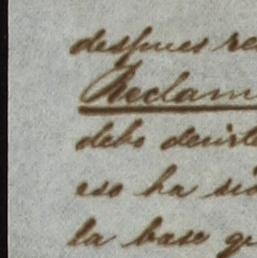 despues re
Reclam
debo decirte
eso ha sid
la base qu